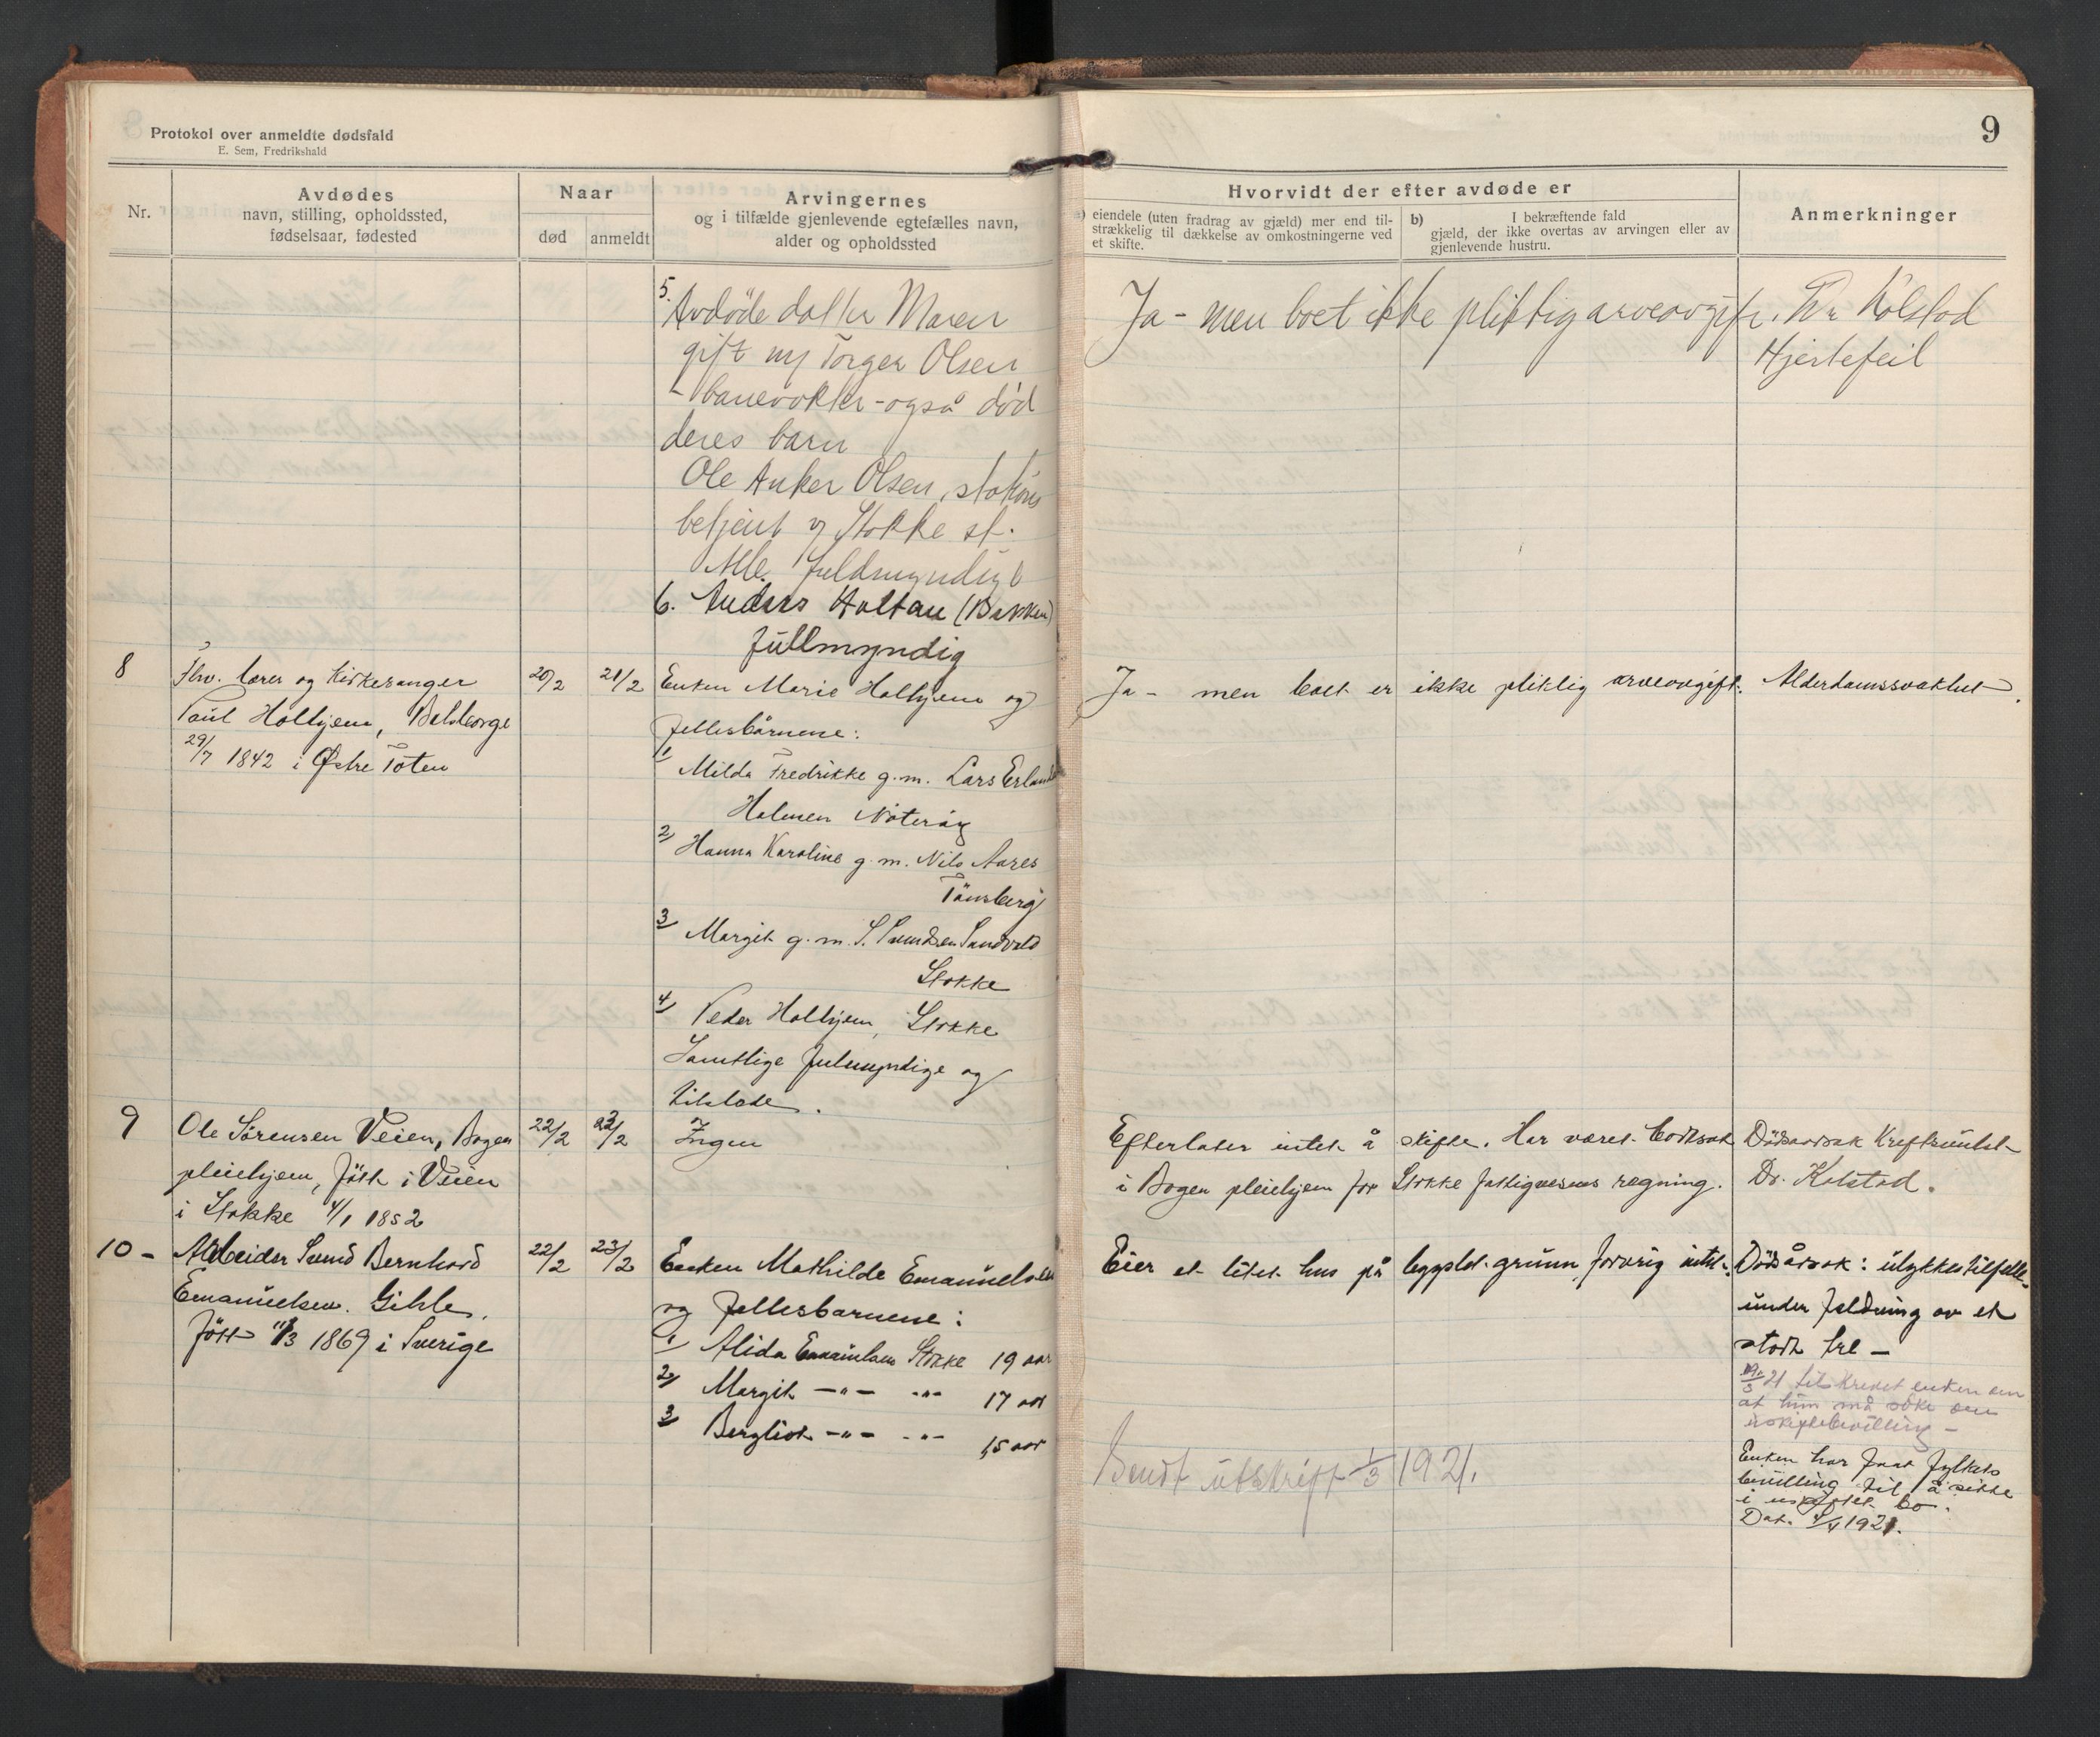 Protokol over anmeldte dødsfald
E. Sem, Fredrikshald
Nr.
Avdødes
navn, stilling, opholdssted,
fødselsaar, fødested
Naar
død
anmeldt
Arvingernes
og i tilfælde gjenlevende egtefælles navn,
alder og opholdssted
5.
Avdøde datter Maren
gift m/ Torger Olsen
- banevokter - også død
deres barn
Ole Anker Olsen, stations
betjent v/ Stokke st.
Alle fuldmyndig
6. Anders Holtan (Bakken)
füllmyndig
8
Fhv. lærer og Kirkesanger
Paul Holtjem,
29/7 1842 i Østre Toten
20/2
21/2
Enken Marie Holtjem og
fellesbårnene:
1/ Milda Fredrikke g.m. Lars Erland
Holmen Nøterøy
2/ Hanna Karoline g.m. Nils Aares
Tönsberg
3/ Margit g.m. S. Svendsen Sundvold
Stokke
4/ Peder Holtjem, Stokke
Samtlige fulmyndige og
tilstede.
9
Ole Sörensen Veien, Bogen
pleiehjem, fött i Veien
i Stokke 4/1 1852
22/2
22/2
Ingen
10 -
Arbeider Svend Bernhard
Emanüelsen. Gihle.
fött 11/3 1869 i Sverige
22/2
23/2
Enken Mathilde Emanüelsen
og fellesbarnene:
1/ Alida Emanüelsen Stokke 19 aar
2/ Margit -"- -"- 17 aar
3/ Bergliot -"- -"- 15 aar
9
Hvorvidt der efter avdøde er
eiendele (uten fradrag av gjæld) mer end til-
strækkelig til dækkelse av omkostningerne ved
et skifte.
b) I bekræftende fald
gjæld, der ikke overtas av arvingen eller av
gjenlevende hustru.
Anmerkninger
Ja - men boet ikke pliktig arveavgift. Dr. Kolstad
Hjertefeil
Ja - men boet er ikke pliktig arveavgift. Alderdomssvakhet.
Efterlater intet å skifte. Har været bortsat
i Bogen pleiehjem for Stokke fattigvesens regning.
Dödsaarsak Kreftsüldt
Dr. Kolstad.
Eier et litet hus på bygslet grünn, forøvrig intet.
Dödsårsak: ülykkestilfelle
ünder feldning av et
stort tre -
19/3 21 tilskrevet enken om
at hün må söke om
üskiftebevilling -
Sendt ütskrift 1/3 1921.
Enken har faat fylkets
bevilling til å sitte
i uskiftet bo.
Dat. 4/4 1921.